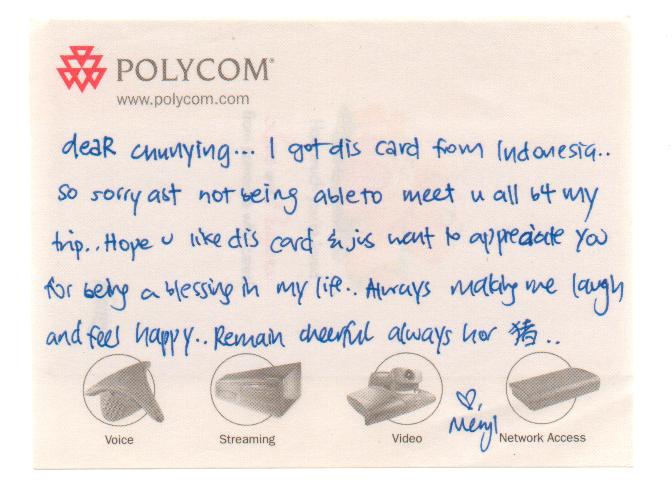 POLYCOM®
www.polycom.com
dear chunying... I got dis card from Indonesia..
So sorry abt not being able to meet u all b4 my
trip.. Hope u like dis card & jus want to appreciate you
for being a blessing in my life.. Always making me laugh
and feel happy.. Remain cheerful always hor 猪..
♡,
Meryl
Voice
Streaming
Video
Network Access